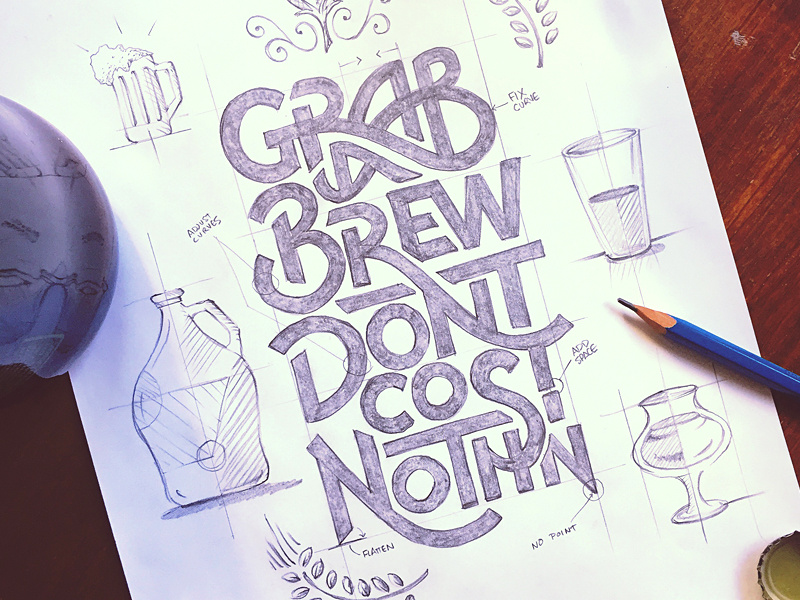 GRAB
BREW
DON'T
COST
NOTHIN
FIX
CURVE
ADJUST
CURVES
ADD
SPACE
FLATTEN
NO POINT